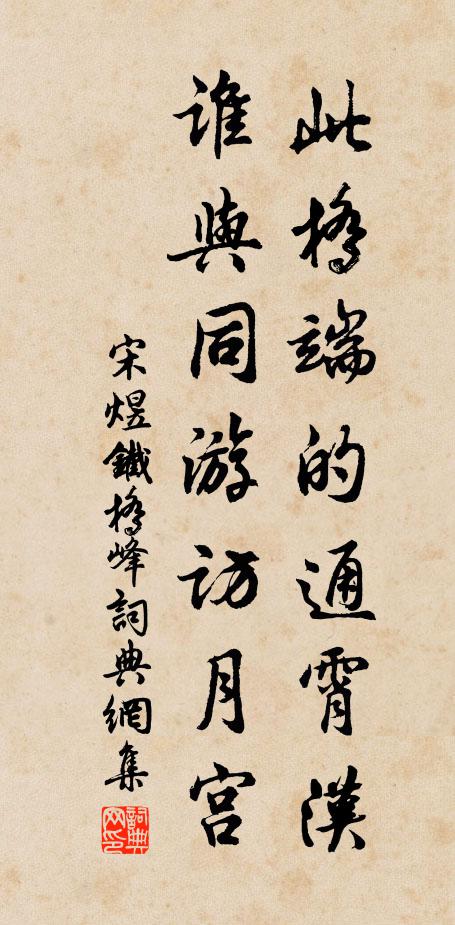 此橋端的通霄漢
誰與同游訪月宮
宋煜鐵橋峰詞典網集
詞典网印